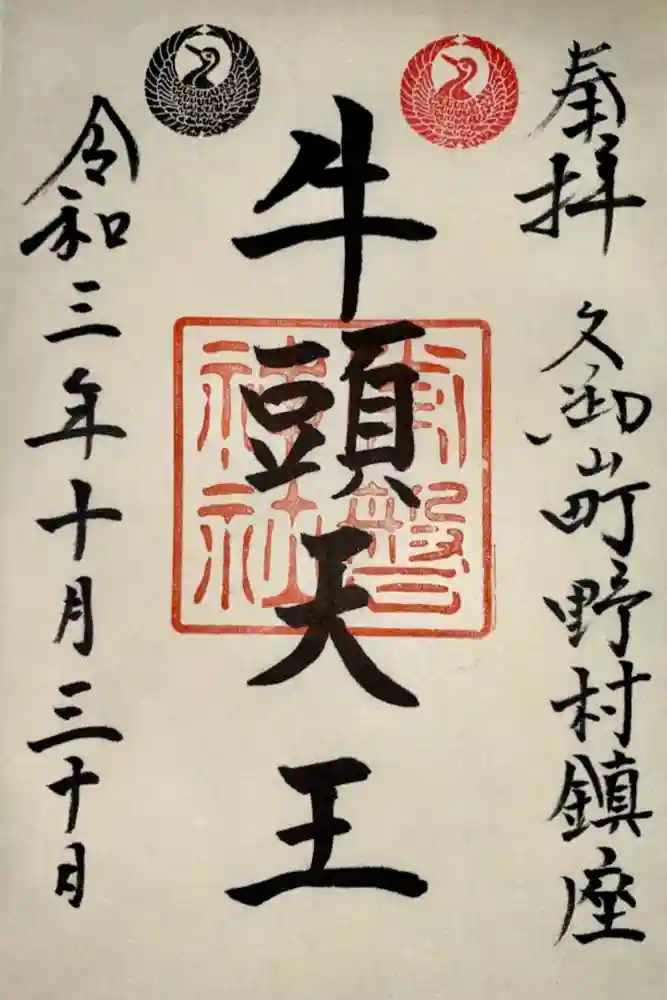 奉拝 久御山町野村鎮座
牛頭天王
常盤
神社
令和三年十月三十日